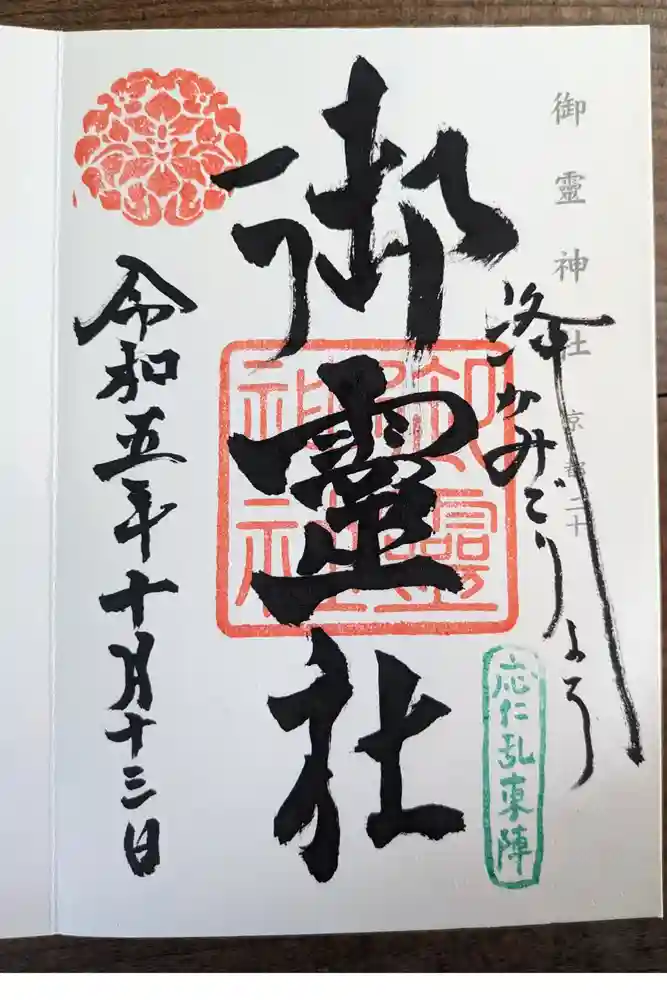 御靈神社 京都二十
洛かみごりょう
応仁乱東陣
御靈社
令和五年十月十三日